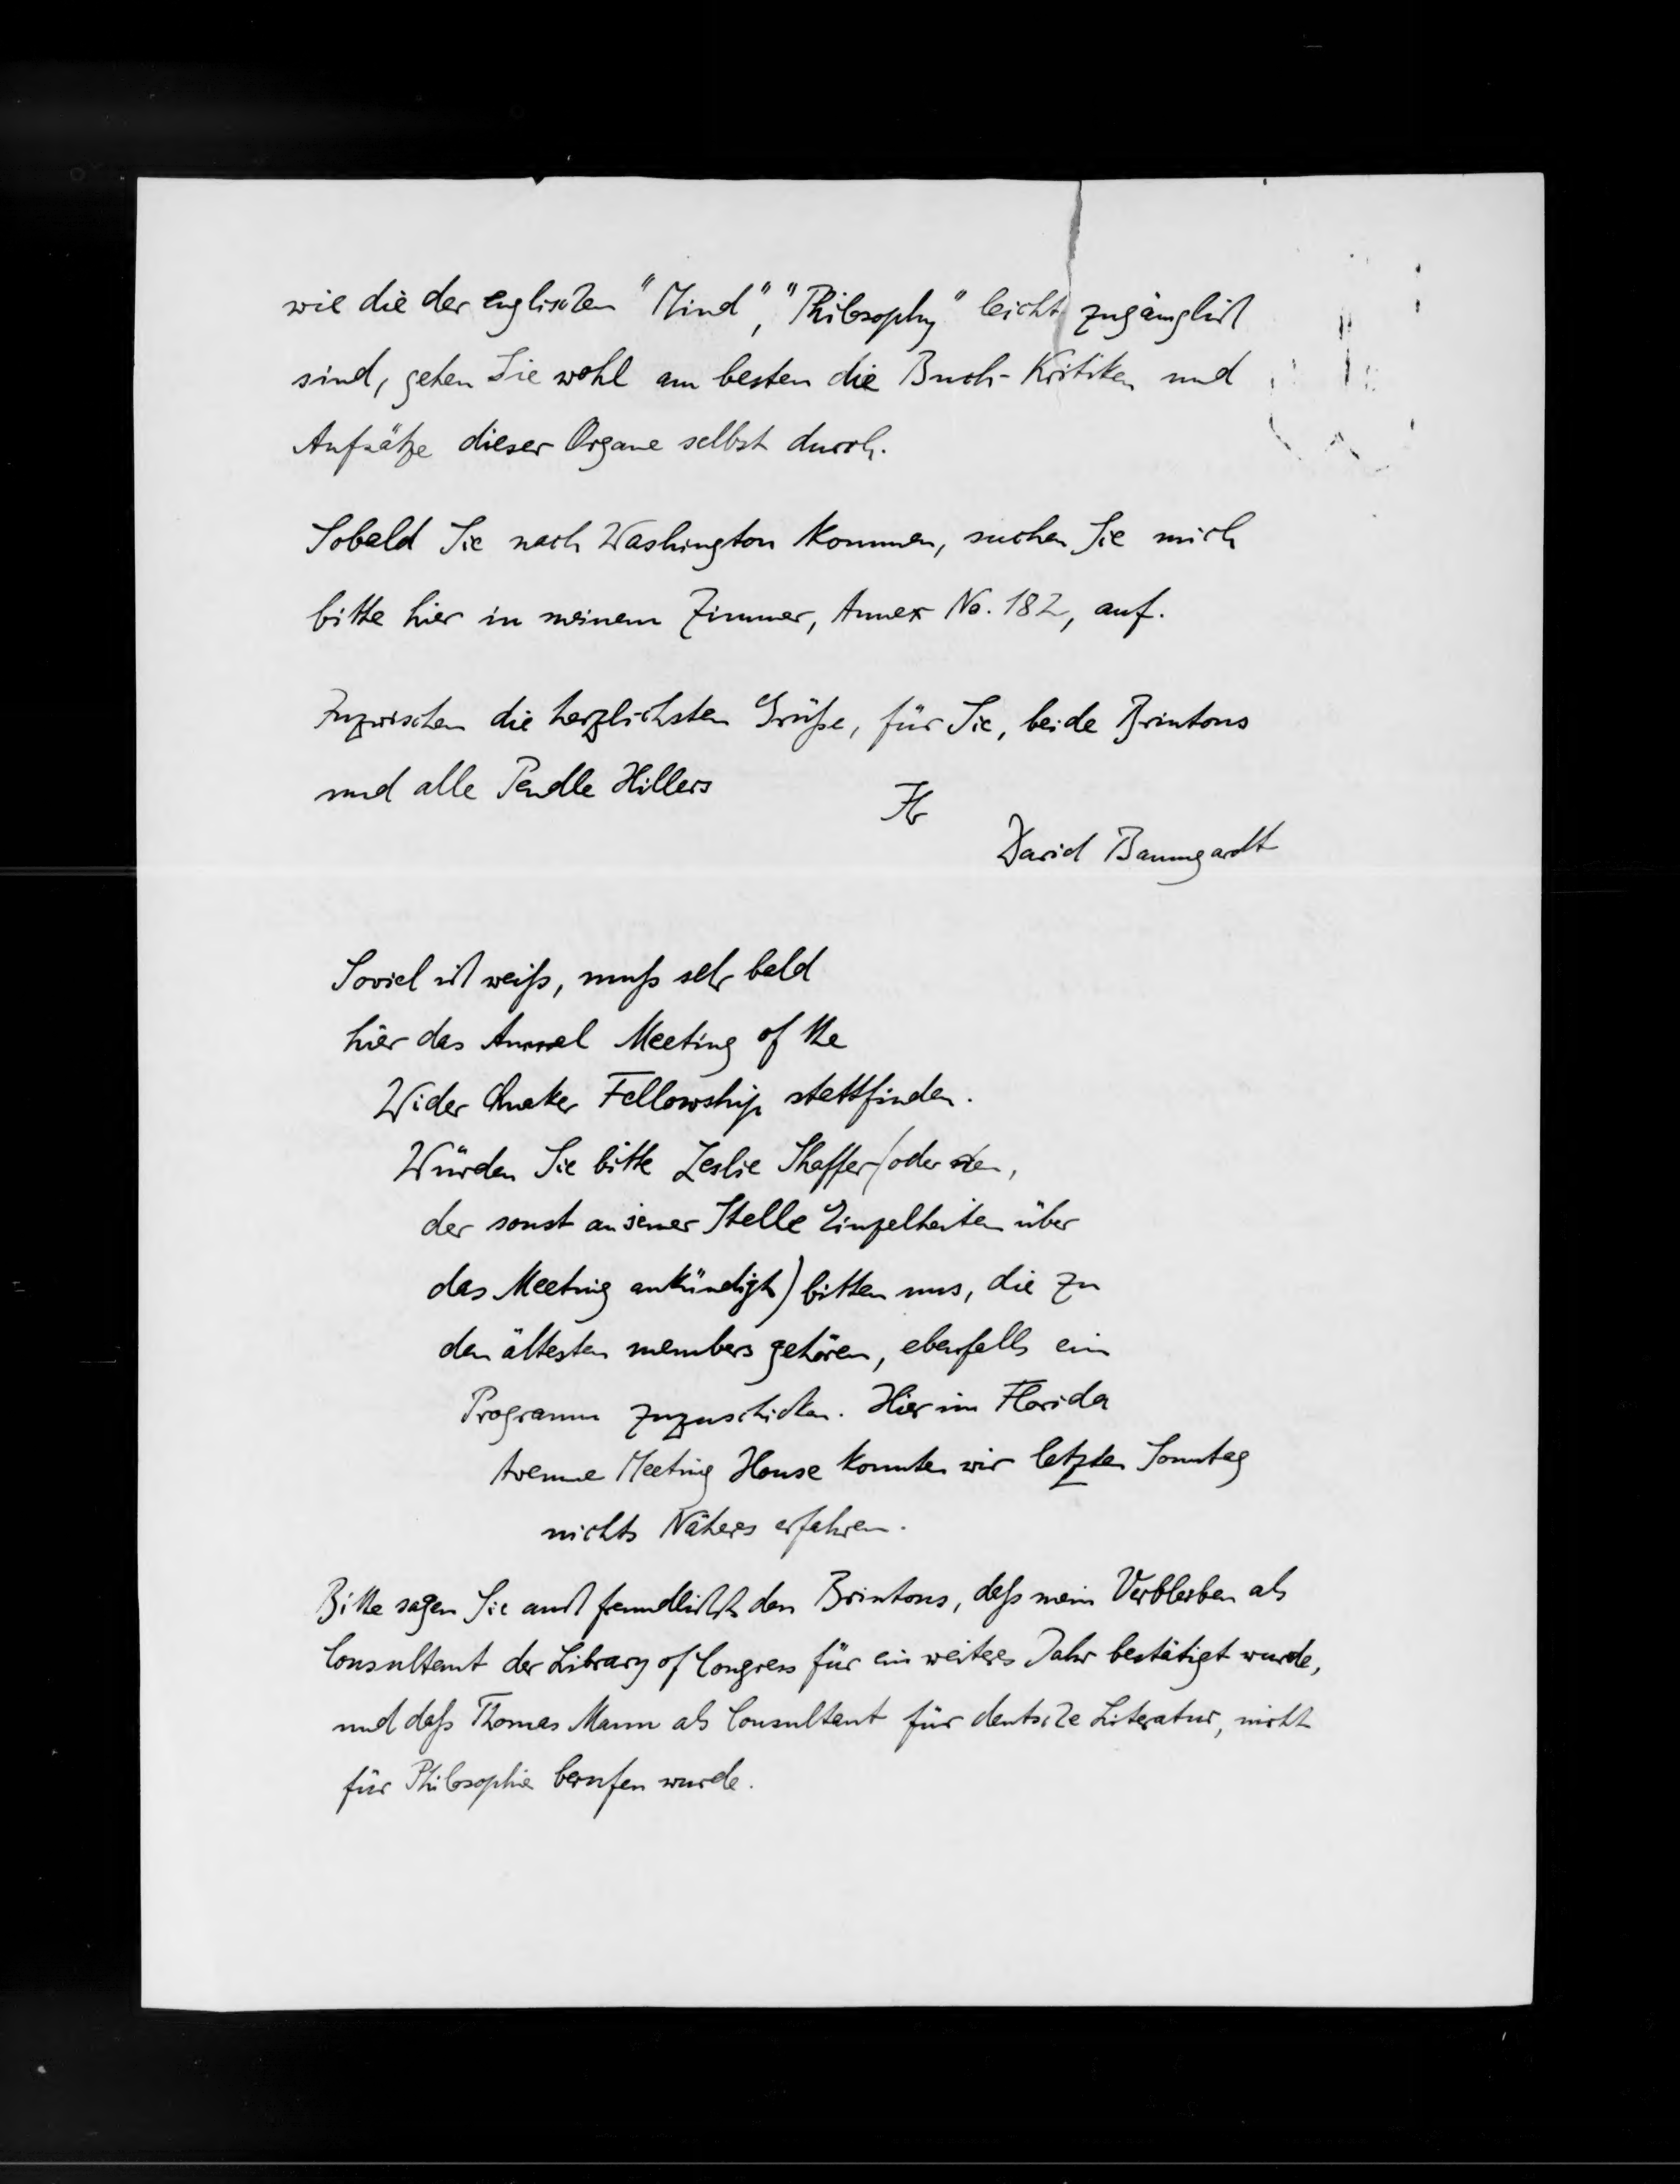 wie die der englischen "Mind", "Philosophy" leicht zugänglich
sind, gehen Sie wohl am besten die Buch-Kritiken und
Aufsätze dieser Organe selbst durch.
Sobald Sie nach Washington kommen, suchen Sie mich
bitte hier in meinem Zimmer, Annex No. 182, auf.
Inzwischen die herzlichsten Grüße, für Sie, beide Brintons
und alle Pendle Hillers
Ihr
David Baumgardt
Soviel ich weiß, muß sehr bald
hier das Annual Meeting of the
Wider Quaker Fellowship stattfinden.
Würden Sie bitte Leslie Shaffer (oder den,
der sonst an jener Stelle Einzelheiten über
das Meeting ankündigt) bitten uns, die zu
den ältesten members gehören, ebenfalls ein
Programm zuzuschicken. Hier im Florida
Avenue Meeting House konnten wir letzten Sonntag
nichts Näheres erfahren.
Bitte sagen Sie auch freundlichst den Brintons, daß mein Verbleiben als
Consultant der Library of Congress für ein weiteres Jahr bestätigt wurde,
und daß Thomas Mann als Consultant für deutsche Literatur, nicht
für Philosophie berufen wurde.